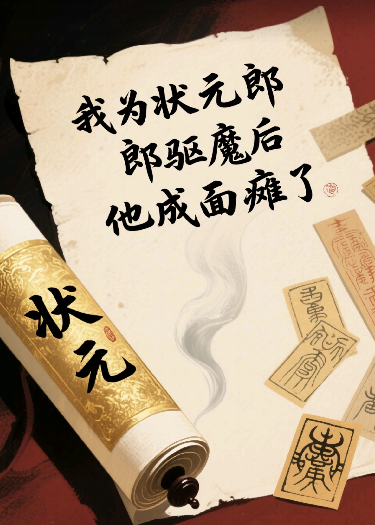 我为状元郎
郎驱魔后
他成面瘫了
状元